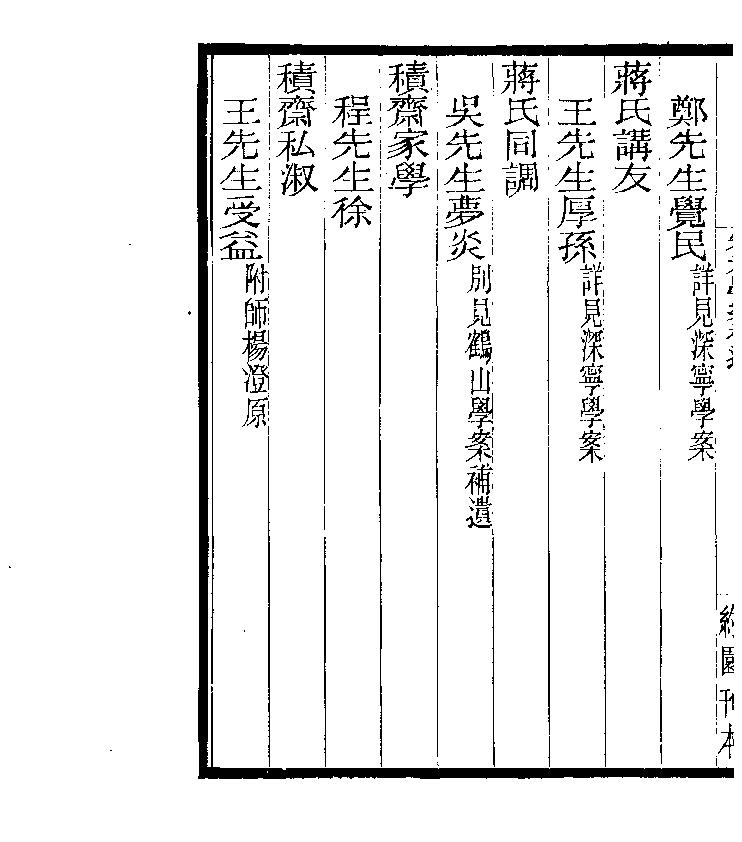 鄭先生覺民詳見深寧學案
蔣氏講友
王先生厚孫詳見深寧學案
蔣氏同調
吳先生夢炎別見鶴山學案補遺
積齋家學
程先生徐
積齋私淑
王先生受益附師楊澄原